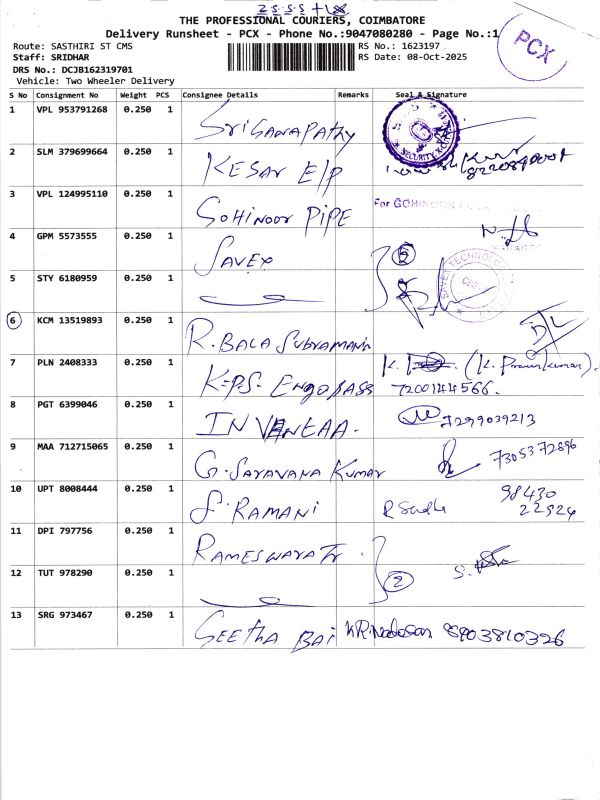 THE PROFESSIONAL COURIERS, COIMBATORE
Delivery Runsheet - PCX - Phone No.:9047080280 - Page No.:1
PCX
Route: SASTHIRI ST CMS RS No.: 1623197
Staff: SRIDHAR RS Date: 08-Oct-2025
DRS No.: DCJB162319701
Vehicle: Two Wheeler Delivery
S No Consignment No Weight PCS Consignee Details Remarks Seal & Signature
1 VPL 953791268 0.250 1 Sri Ganapathy
SECURITY
2 SLM 379699664 0.250 1 KESAR E/P
3 VPL 124995110 0.250 1 GOHINOOR PIPE For GOHINOOR
4 GPM 5573555 0.250 1 SAVEX
5 STY 6180959 0.250 1
6 KCM 13519893 0.250 1 R. BALA SUBRAMANI D/L
7 PLN 2408333 0.250 1 K.P.S. ENGG (K. Pravinkumar).
7200144566.
8 PGT 6399046 0.250 1 IN VENTAA. 7299039213
9 MAA 712715065 0.250 1 G. SARAVANA KUMAR 7305372896
10 UPT 8008444 0.250 1 S. RAMANI 98430
22924
11 DPI 797756 0.250 1 RAMESWARA Tr
12 TUT 978290 0.250 1 2
13 SRG 973467 0.250 1 GEETHA BAI 8903810326